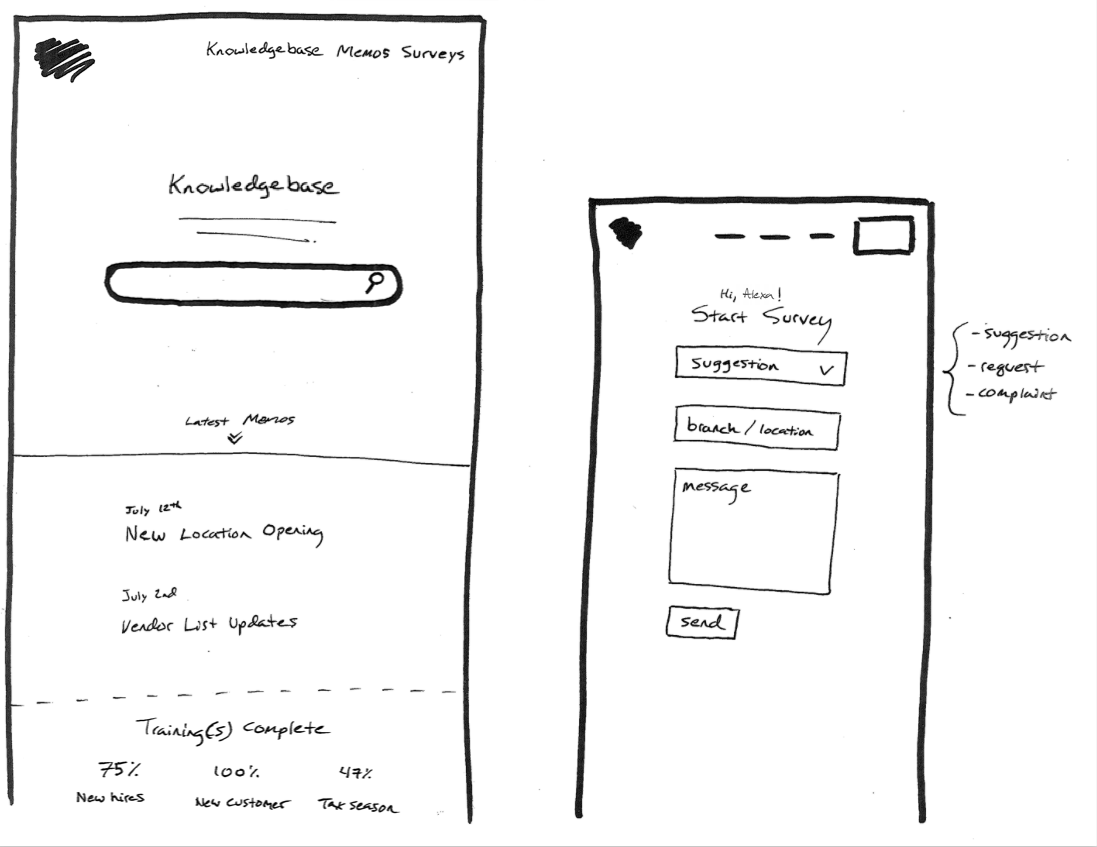 Knowledgebase Memos Surveys
Knowledgebase
Latest Memos
July 12th
New Location Opening
July 2nd
Vendor List Updates
Training(s) Complete
75% 100% 47%
New hires New customer Tax season
Hi, Alexa!
Start Survey
suggestion
branch / location
message
send
- suggestion
- request
- complaint